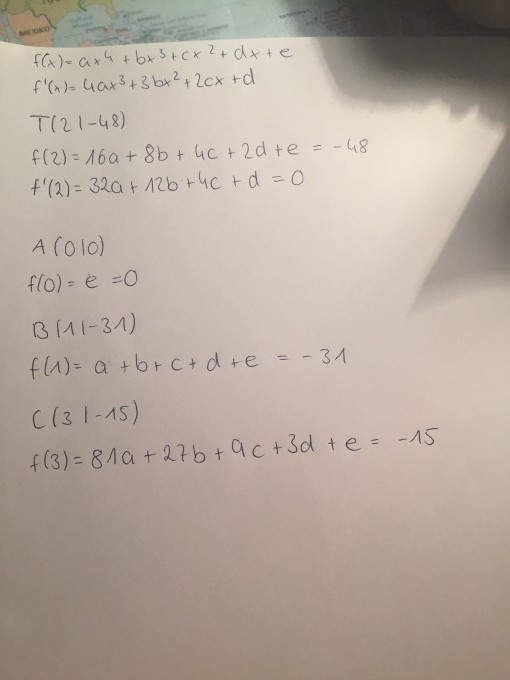 MEXIKO
f(x)= ax⁴ + bx³ + cx² + dx + e
f'(x)= 4ax³ + 3bx² + 2cx + d
T(2|-48)
f(2)= 16a + 8b + 4c + 2d + e = -48
f'(2)= 32a + 12b + 4c + d = 0
A(0|0)
f(0)= e = 0
B(1|-31)
f(1)= a + b + c + d + e = -31
C(3|-15)
f(3)= 81a + 27b + 9c + 3d + e = -15